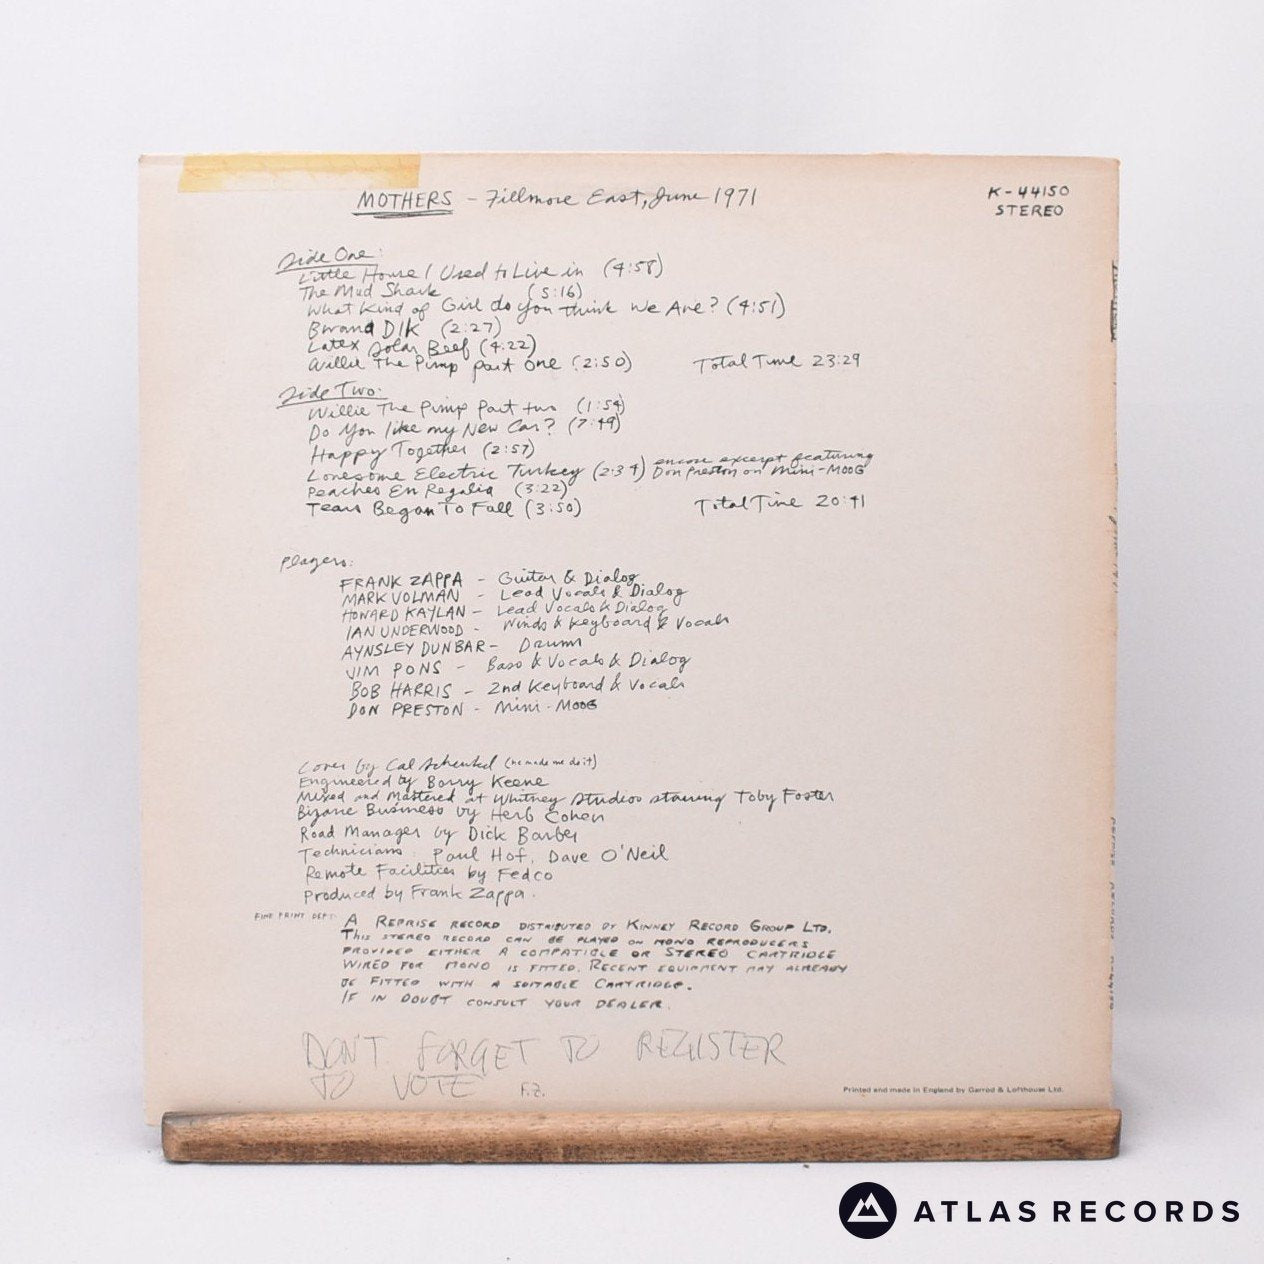 MOTHERS - Fillmore East, June 1971
K-44150
STEREO
Side One:
Little House I Used to Live in (4:58)
The Mud Shark (5:16)
What Kind of Girl do you think We Are? (4:51)
Bwana DIK (2:27)
Latex Solar Beef (4:22)
Willie The Pimp part One (2:50) Total Time 23:29
Side Two:
Willie The Pimp Part two (1:54)
Do You like my New Car? (7:49)
Happy Together (2:57)
Lonesome Electric Turkey (2:34) encore excerpt featuring
Don Preston on Mini-MOOG
Peaches En Regalia (3:22)
Tears Began To Fall (3:50) Total Time 20:41
Players:
FRANK ZAPPA - Guitar & Dialog
MARK VOLMAN - Lead Vocals & Dialog
HOWARD KAYLAN - Lead Vocals & Dialog
IAN UNDERWOOD - Winds & Keyboard & Vocals
AYNSLEY DUNBAR - Drums
JIM PONS - Bass & Vocals & Dialog
BOB HARRIS - 2nd Keyboard & Vocals
DON PRESTON - Mini-MOOG
Cover by Cal Schenkel (he made me do it)
Engineered by Barry Keene
Mixed and Mastered at Whitney Studios starring Toby Foster
Bizarre Business by Herb Cohen
Road Manager by Dick Barber
Technicians: Paul Hof, Dave O'Neil
Remote Facilities by Fedco
Produced by Frank Zappa.
FINE PRINT DEPT: A REPRISE RECORD DISTRIBUTED BY KINNEY RECORD GROUP LTD.
THIS STEREO RECORD CAN BE PLAYED ON MONO REPRODUCERS
PROVIDED EITHER A COMPATIBLE OR STEREO CARTRIDGE
WIRED FOR MONO IS FITTED. RECENT EQUIPMENT MAY ALREADY
BE FITTED WITH A SUITABLE CARTRIDGE.
IF IN DOUBT CONSULT YOUR DEALER.
DON'T FORGET TO REGISTER
TO VOTE F.Z.
Printed and made in England by Garrod & Lofthouse Ltd.
ATLAS RECORDS